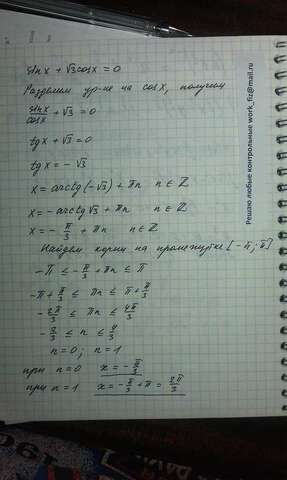 sinx + √3cosx = 0
Разделим ур-ие на cosx, получим
sinx/cosx + √3 = 0
tgx + √3 = 0
tgx = -√3
x = arctg(-√3) + πn n∈Z
x = -arctg√3 + πn n∈Z
x = -π/3 + πn n∈Z
Найдем корни на промежутке [-π; π]
-π ≤ -π/3 + πn ≤ π
-π + π/3 ≤ πn ≤ π + π/3
-2π/3 ≤ πn ≤ 4π/3
-2/3 ≤ n ≤ 4/3
n=0; n=1
при n=0 x = -π/3
при n=1 x = -π/3 + π = 2π/3
Решаю любые контрольные work_fiz@mail.ru